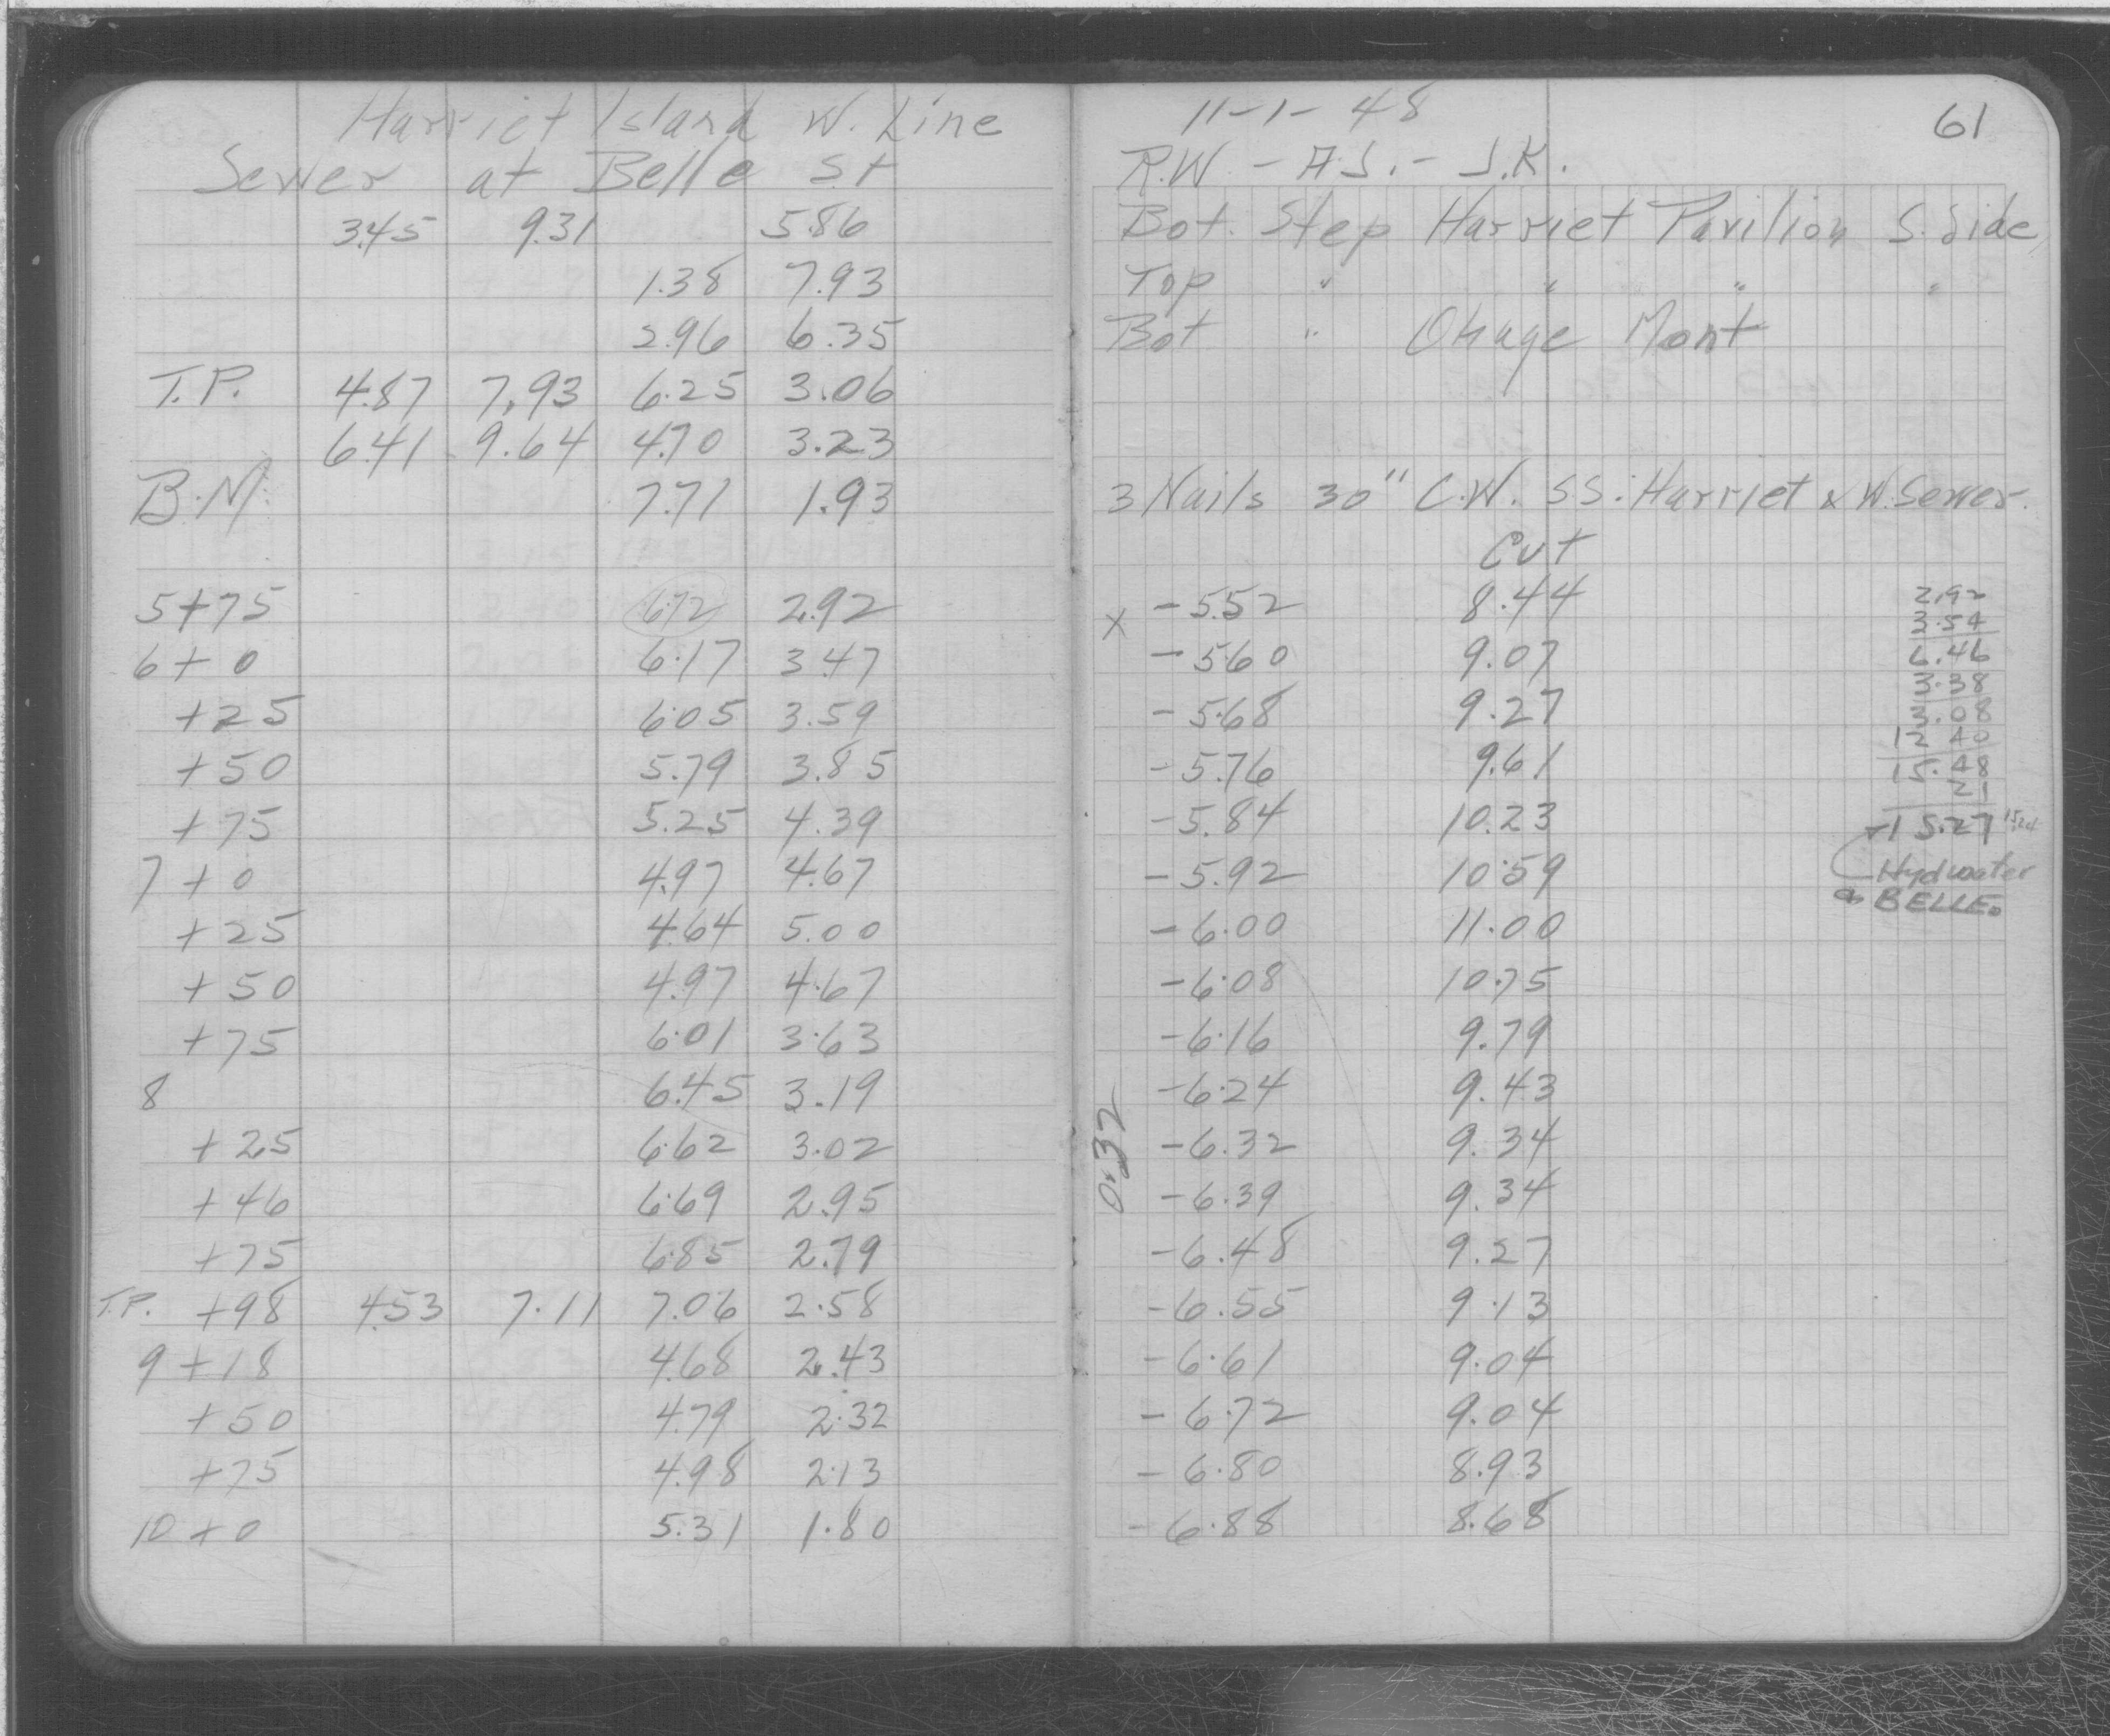 Harriet Island W. Line
Sewer at Belle St
3.45 9.31 5.86
1.38 7.93
2.96 6.35
T.P. 4.87 7.93 6.25 3.06
6.41 9.64 4.70 3.23
B.M. 7.71 1.93
5+75 6.72 2.92
6+0 6.17 3.47
+25 6.05 3.59
+50 5.79 3.85
+75 5.25 4.39
7+0 4.97 4.67
+25 4.64 5.00
+50 4.97 4.67
+75 6.01 3.63
8 6.45 3.19
+25 6.62 3.02
+46 6.69 2.95
+75 6.85 2.79
T.P. +98 4.53 7.11 7.06 2.58
9+18 4.68 2.43
+50 4.79 2.32
+75 4.98 2.13
10+0 5.31 1.80
11-1-48
61
R.W - A.J. - J.K.
Bot. Step Harriet Pavilion S. Side
Top " " " "
Bot " Ohage Mont
3 Nails 30" C.W. SS. Harriet & W. Sewer.
Cut
x -5.52 8.44
-5.60 9.07
-5.68 9.27
-5.76 9.61
-5.84 10.23
-5.92 10.59
-6.00 11.00
-6.08 10.75
-6.16 9.79
-6.24 9.43
-6.32 9.34
-6.39 9.34
-6.48 9.27
-6.55 9.13
-6.61 9.04
-6.72 9.04
-6.80 8.93
-6.88 8.68
0.32
2.92
3.54
6.46
3.38
3.08
12 40
15.48
21
15.27
Hyd water
BELLE.